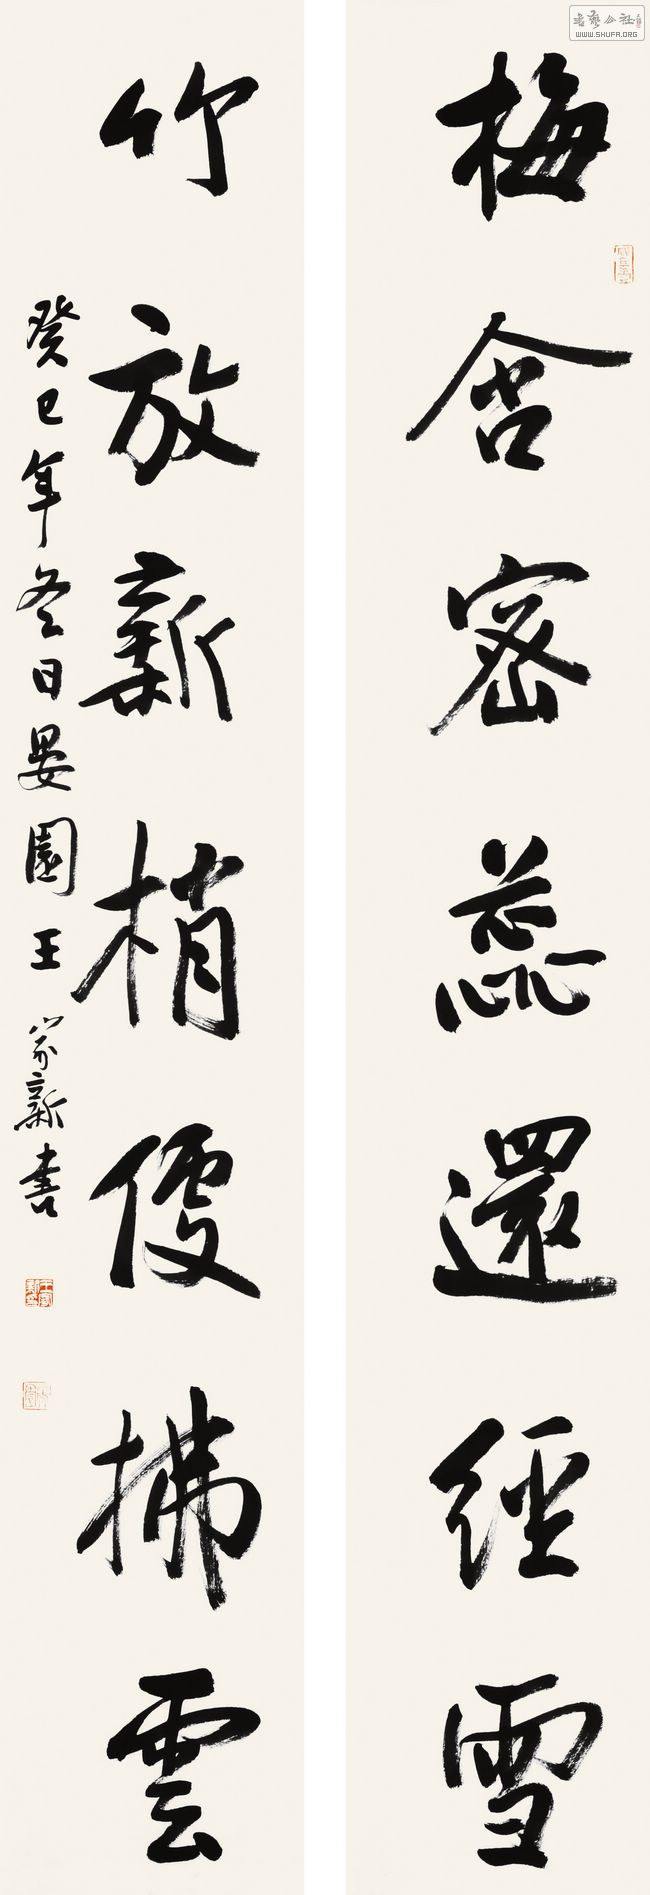 書藝公社
WWW.SHUFA.ORG
梅含密蕊還經雪
竹放新梢便拂雲
癸巳年冬日晏園王家新書